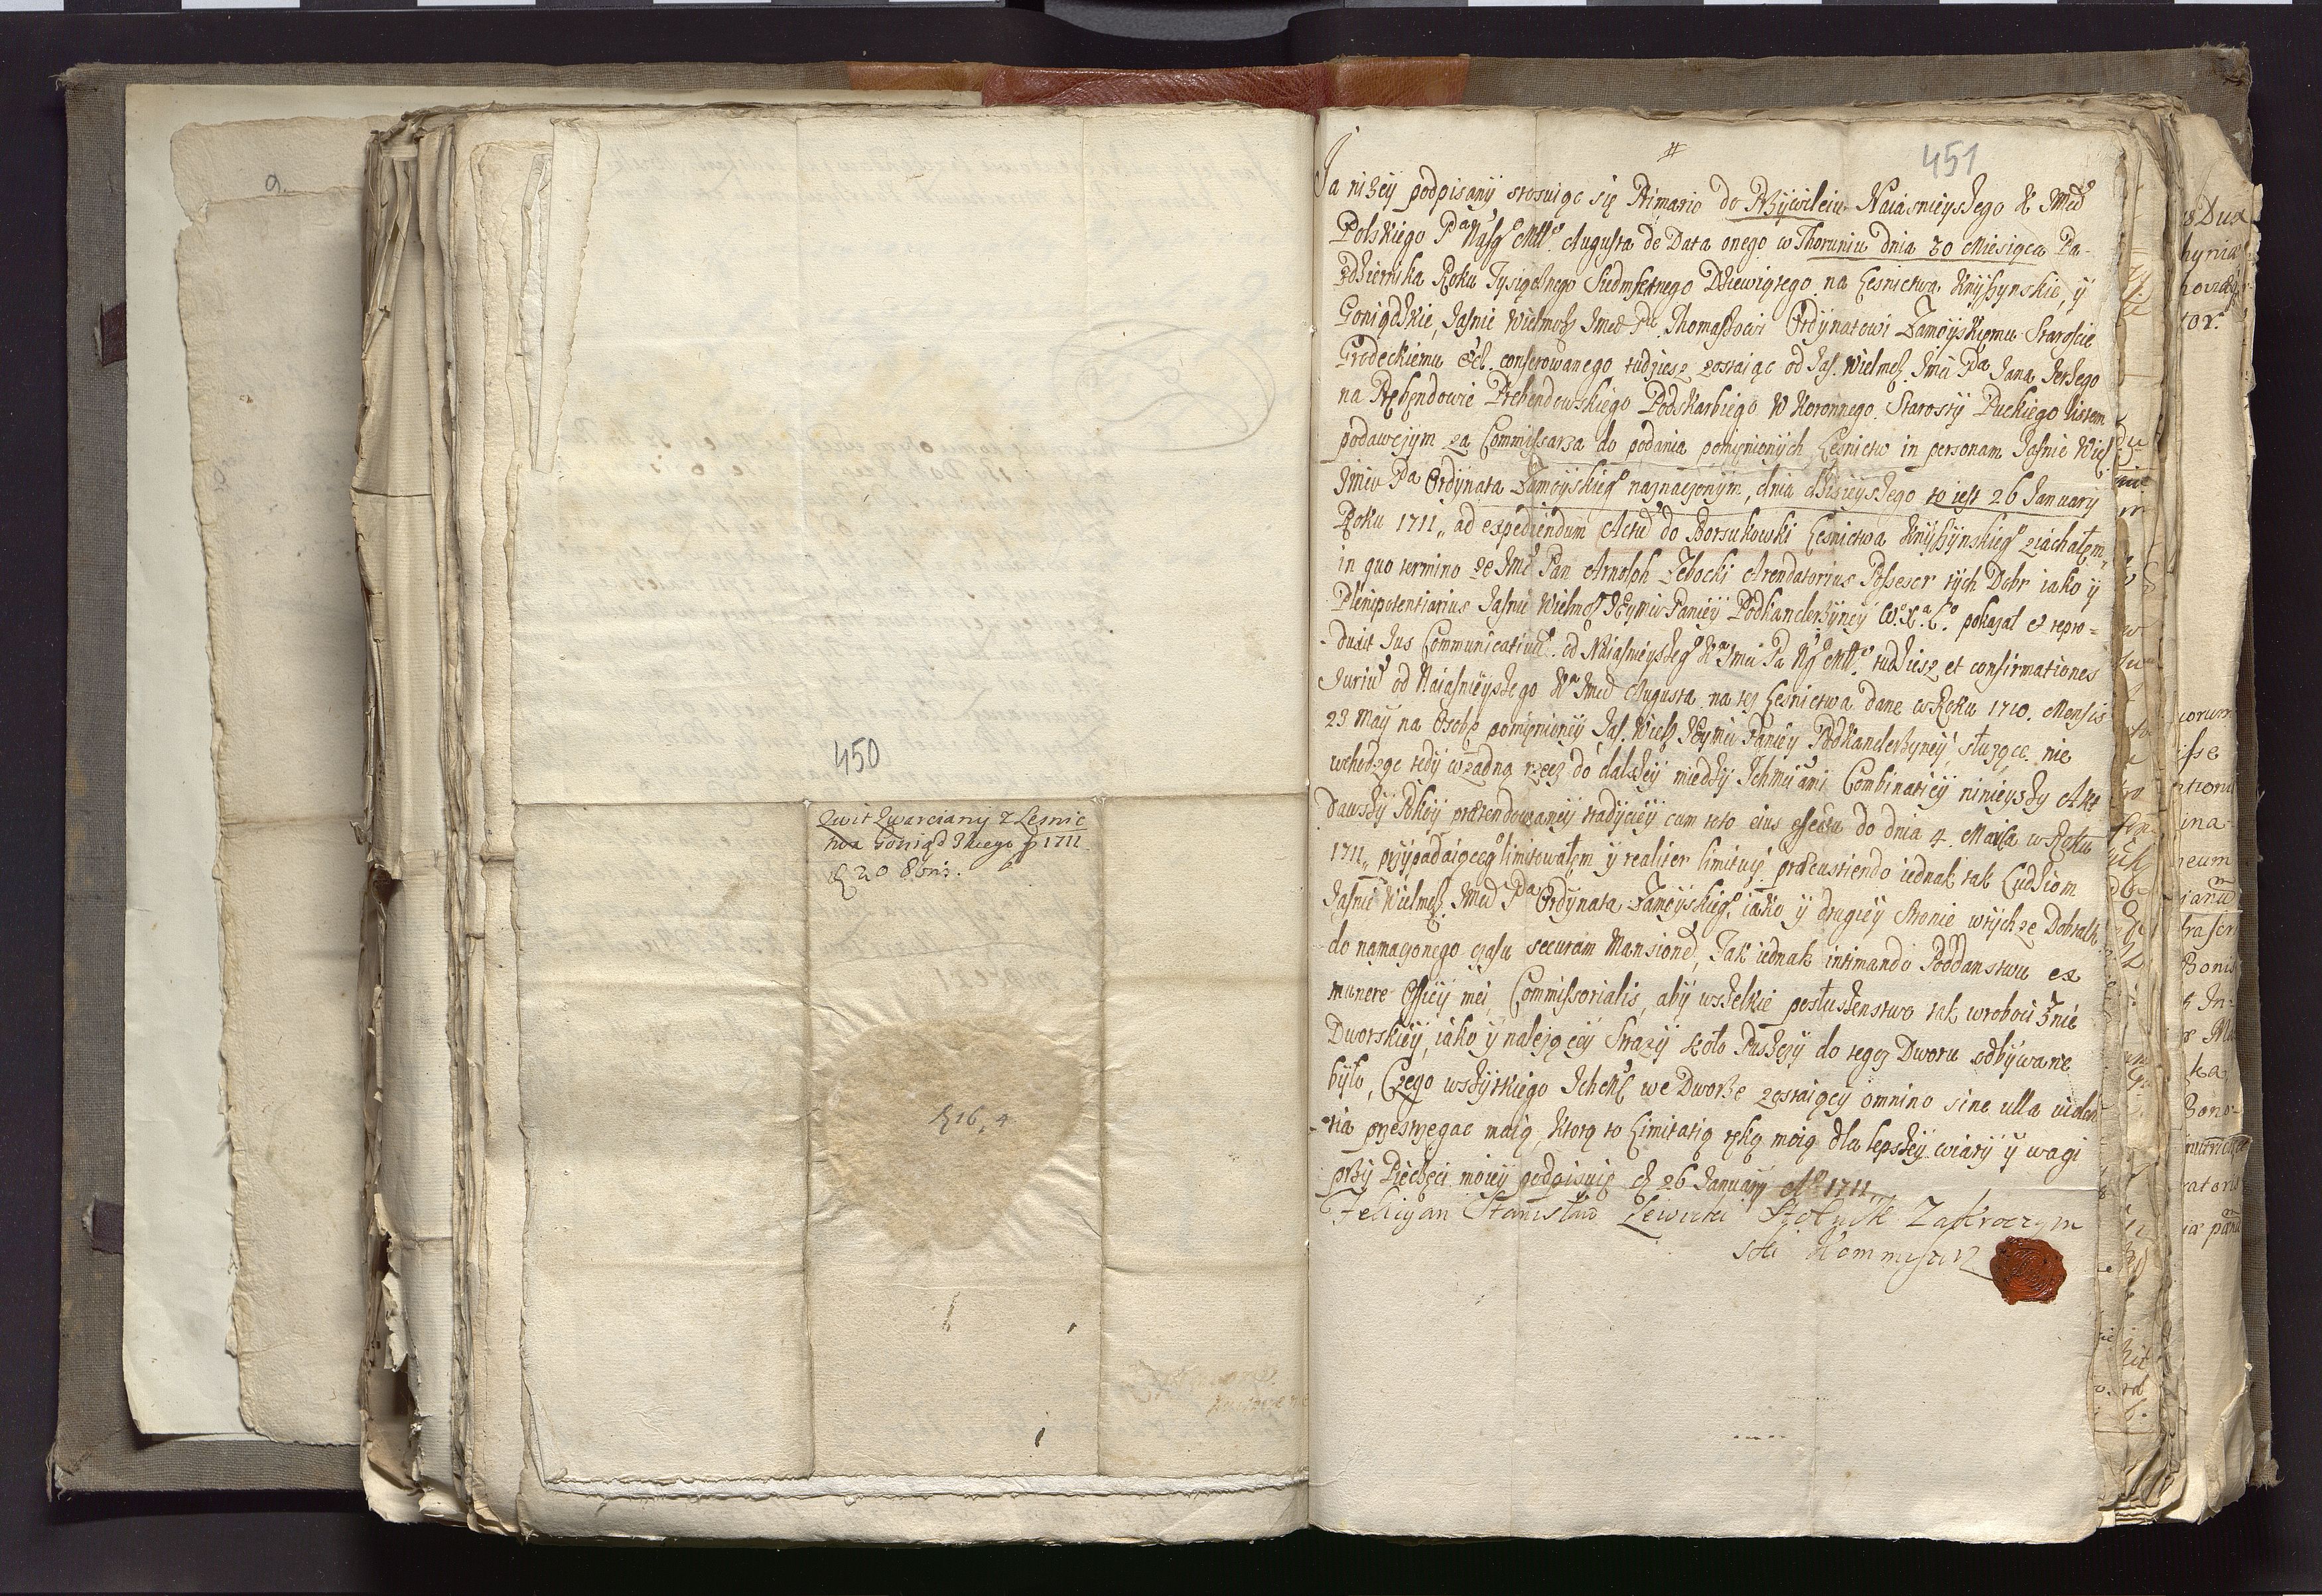 450
Qwit Kwarciany z Lesnic
twa Goniądzkiego p 1711
R 16, 4
451
#
Ja niżey podpisany stosuiąc się Primario do Przywileiu Naiasnieyszego K JMci
Polskiego Pa Nasgo Mttgo Augusta de Data onego w Thoruniu dnia 30 Miesiąca Pa-
zdziernika Roku Tysiącznego Siedmsetnego Dziewiątego na Lesnictwa Knyszynskie, y
Goniądzkie, Jasnie Wielmoż Jmci Pu Thomaszowi Ordynatowi Zamoyskiemu Staroscie
Grodeckiemu &ct. conferowanego tudziesz zostaiąc od Jas. Wielmoż. Jmci Pa Jana Jerzego
na Przebendowie Prebendowskiego Podskarbiego W Koronnego Starosty Puckiego listem
podawczym za Commissarza do podania pomienionych Lesnictw in personam Jasnie Wiel
Jmci Pa Ordynata Zamoyskiego naznaczonym, dnia dzisieyszego to iest 26 January
Roku 1711,, ad expediendum Actu do Borsukowki Lesnictwa Knyszynskiego ziachałem,
in quo termino że Jmc Pan Arnolph Zebocki Arendatorius Possesor tych Dobr iako y
Plenipotentiarius Jasnie Wielmoż JEymci Paniey Podkanclerzyney W. X. L. pokazał et repro=
- duxit Jus Communicativu od Naiasnieyszego K Jmci Pa Ngo Mttgo tudziesz et confirmationes
Juriu od Naiasnieyszego Ka Jmci Augusta na też Lesnictwa dane w Roku 1710. Mensis
23 May na Osobę pomienioney Jas. Wielż JEymci Paniey Podkanclerzyney służące nie
wchodząc tedy w żadną rzecz do dalszey miedzy Jchmciami Combinatiey ninieyszy Akt
dawszy Pokoy prætendowaney tradyciey cum toto eius effectu do dnia 4. Maia w Roku
1711,, przypadaiącego limitowałem y realiter limituię præcustiendo iednak tak Ludziom
Jasnie Wielmoż Jmci Pa Ordynata Zamoyskiego, iako y drugiey Stronie w tychze Dobrach
do namagonego czasu securam Mansione, Jak iednak intimando Poddanstwu ex
munere Officij mei Commissorialis, aby wszelkie posłuszenstwo tak w robociznie
Dworskiey, iako y nalezącey Strazy koło Puszczy do tegoż Dworu odbywane
było, Czego wszytkiego Jchmc we Dworze zostaiący omnino sine ulla viola
- tia przestrzegac maią, Ktorą to Limitatią ręką moią dla lepszey wiary y wagi
przy Pieczęci moiey podpisuię d 26 January Ao 1711
Felicyan Stanisław Lewicki Stolnik Zakroczym
ski Kommisarz